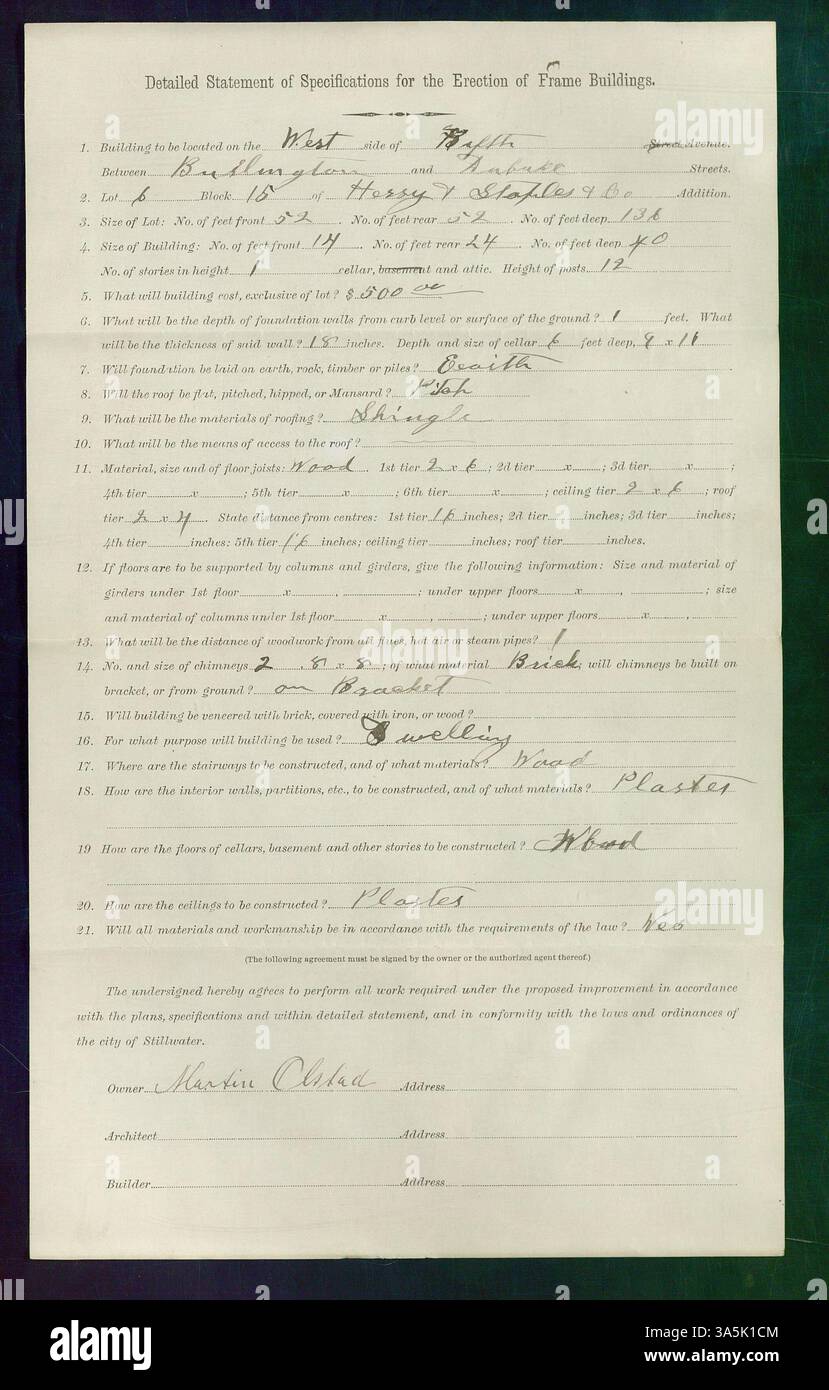 Detailed Statement of Specifications for the Erection of Frame Buildings.
1. Building to be located on the West side of Fifth Street Avenue.
Between Burlington and Dubuke Streets.
2. Lot 6 Block 15 of Hersey & Staples & Co Addition.
3. Size of Lot: No. of feet front 52. No. of feet rear 52. No. of feet deep 136
4. Size of Building: No. of feet front 14. No. of feet rear 24. No. of feet deep 40
No. of stories in height 1 cellar, basement and attic. Height of posts 12
5. What will building cost, exclusive of lot? $500 00
6. What will be the depth of foundation walls from curb level or surface of the ground? 1 feet. What
will be the thickness of said wall? 18 inches. Depth and size of cellar 6 feet deep, 9 x 11
7. Will foundation be laid on earth, rock, timber or piles? Earth
8. Will the roof be flat, pitched, hipped, or Mansard?
9. What will be the materials of roofing? Shingle
10. What will be the means of access to the roof?
11. Material, size and of floor joists: Wood. 1st tier 2 x 6; 2d tier x ; 3d tier x ;
4th tier x ; 5th tier x ; 6th tier x ; ceiling tier 2 x 6; roof
tier 2 x 4. State distance from centres: 1st tier 16 inches; 2d tier inches; 3d tier inches;
4th tier inches: 5th tier 16 inches; ceiling tier inches; roof tier inches.
12. If floors are to be supported by columns and girders, give the following information: Size and material of
girders under 1st floor x , ; under upper floors x , ; size
and material of columns under 1st floor x , ; under upper floors x ,
13. What will be the distance of woodwork from all flues, hot air or steam pipes? 1
14. No. and size of chimneys 2 . 8 x 8; of what material Brick; will chimneys be built on
bracket, or from ground? on Bracket
15. Will building be veneered with brick, covered with iron, or wood?
16. For what purpose will building be used? Dwelling
17. Where are the stairways to be constructed, and of what materials? Wood
18. How are the interior walls, partitions, etc., to be constructed, and of what materials? Plaster
19 How are the floors of cellars, basement and other stories to be constructed? Wood
20. How are the ceilings to be constructed? Plaster
21. Will all materials and workmanship be in accordance with the requirements of the law? Yes
(The following agreement must be signed by the owner or the authorized agent thereof.)
The undersigned hereby agrees to perform all work required under the proposed improvement in accordance
with the plans, specifications and within detailed statement, and in conformity with the laws and ordinances of
the city of Stillwater.
Owner Martin Olstad Address
Architect Address
Builder Address
alamy
Image ID: 3A5K1CM
www.alamy.com